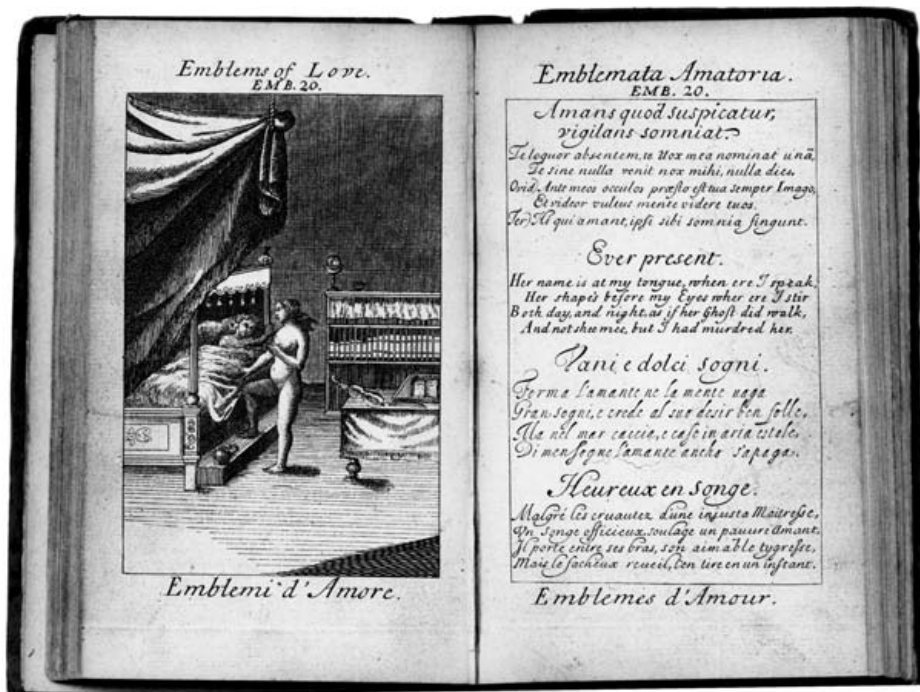 Emblems of Love.
EMB. 20.
Emblemi d'Amore.
Emblemata Amatoria.
EMB. 20.
Amans quod suspicatur,
vigilans somniat.
Te loquor absentem, te Vox mea nominat unã,
Te sine nulla venit nox mihi, nulla dies.
Ovid. Ante meos occulos præsto est tua semper Imago,
Et videor vultus mente videre tuos.
Ter) Hi qui amant, ipsi sibi somnia fingunt.
Ever present.
Her name is at my tongue, when ere I speak,
Her shape's before my Eyes wher ere I stir
Both day, and night, as if her Ghost did walk,
And not shee mee, but I had murdred her.
Vani e dolci sogni.
Forma l'amante ne la mente vaga
Gran sogni, e crede al suo desir ben folle,
Ma nel mar caccia, e case in aria estole,
Di mensogne l'amante ancho s'apaga.
Heureux en songe.
Malgré les cruautez d'une injuste Maitresse,
Un songe officieux, soulage un pauvre Amant,
Il porte entre ses bras, son aimable tygresse,
Mais le facheux reveil, l'en tire en un instant.
Emblemes d'Amour.